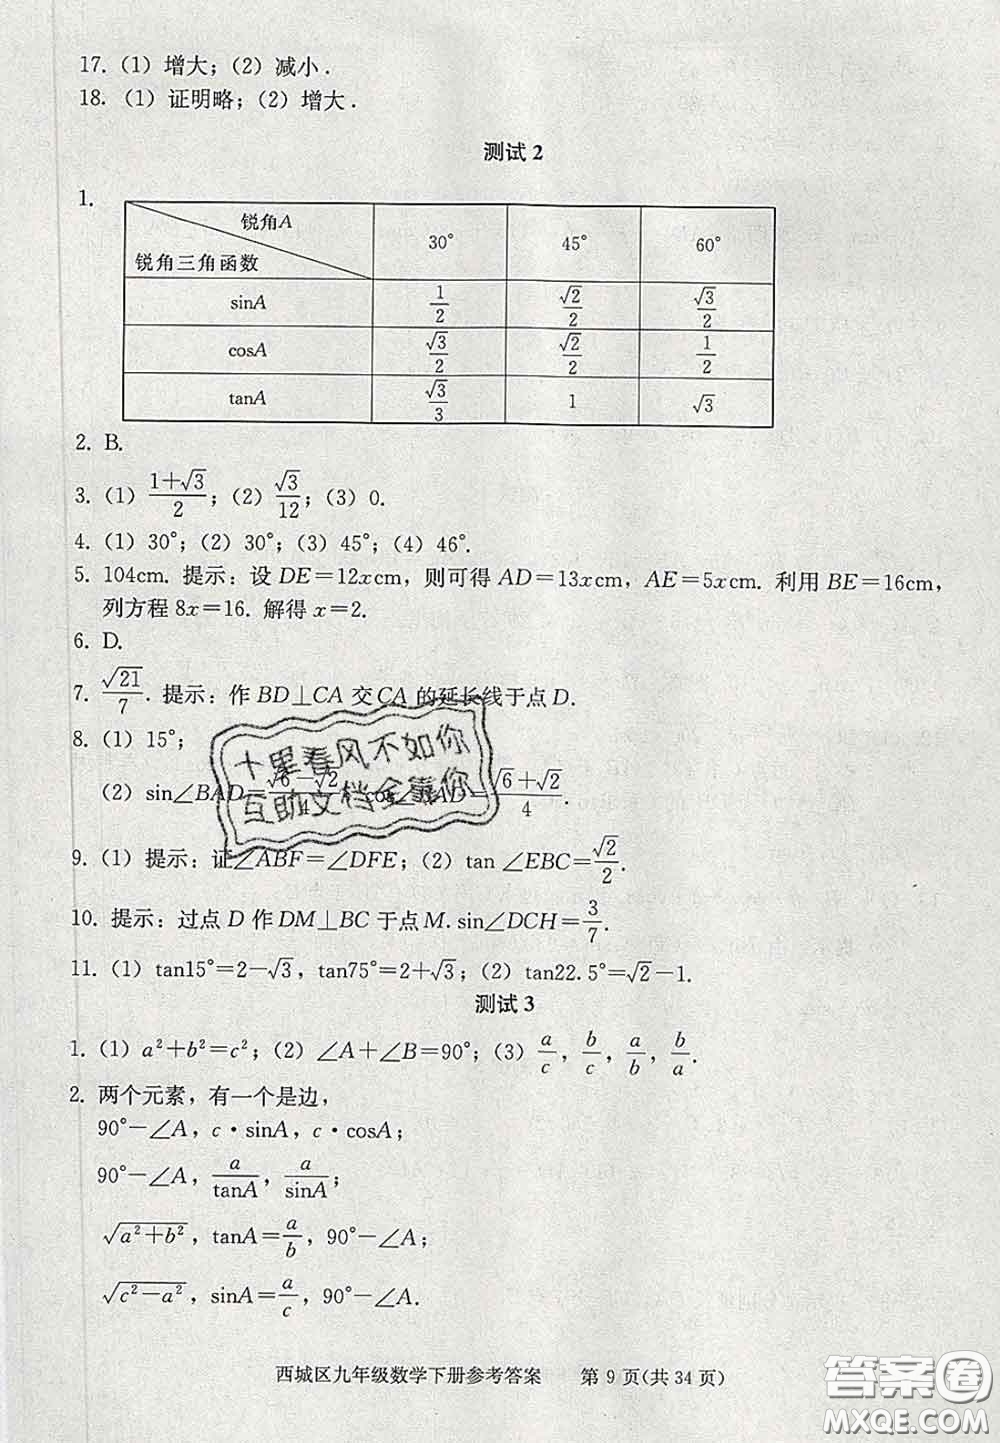 17. (1) 增大；(2) 减小.
18. (1) 证明略；(2) 增大.
测试 2
1.
锐角A
锐角三角函数
30° 45° 60°
sinA 1/2 √2/2 √3/2
cosA √3/2 √2/2 1/2
tanA √3/3 1 √3
2. B.
3. (1) (1+√3)/2；(2) √3/12；(3) 0.
4. (1) 30°；(2) 30°；(3) 45°；(4) 46°.
5. 104cm. 提示：设 DE=12xcm，则可得 AD=13xcm，AE=5xcm. 利用 BE=16cm，
列方程 8x=16. 解得 x=2.
6. D.
7. √21/7. 提示：作 BD⊥CA 交 CA 的延长线于点 D.
8. (1) 15°；
(2) sin∠BAD=(√6-√2)/4，cos∠BAD=(√6+√2)/4.
十里春风不如你
互助文档全靠你
9. (1) 提示：证∠ABF=∠DFE；(2) tan ∠EBC=√2/2.
10. 提示：过点 D 作 DM⊥BC 于点 M. sin∠DCH=3/7.
11. (1) tan15°=2-√3，tan75°=2+√3；(2) tan22.5°=√2-1.
测试 3
1. (1) a²+b²=c²；(2) ∠A+∠B=90°；(3) a/c，b/c，a/b，b/a.
2. 两个元素，有一个是边，
90°-∠A，c·sinA，c·cosA；
90°-∠A，a/tanA，a/sinA；
√(a²+b²)，tanA=a/b，90°-∠A；
√(c²-a²)，sinA=a/c，90°-∠A.
西城区九年级数学下册参考答案 第 9 页(共 34 页)
答案圈
MXQE.COM